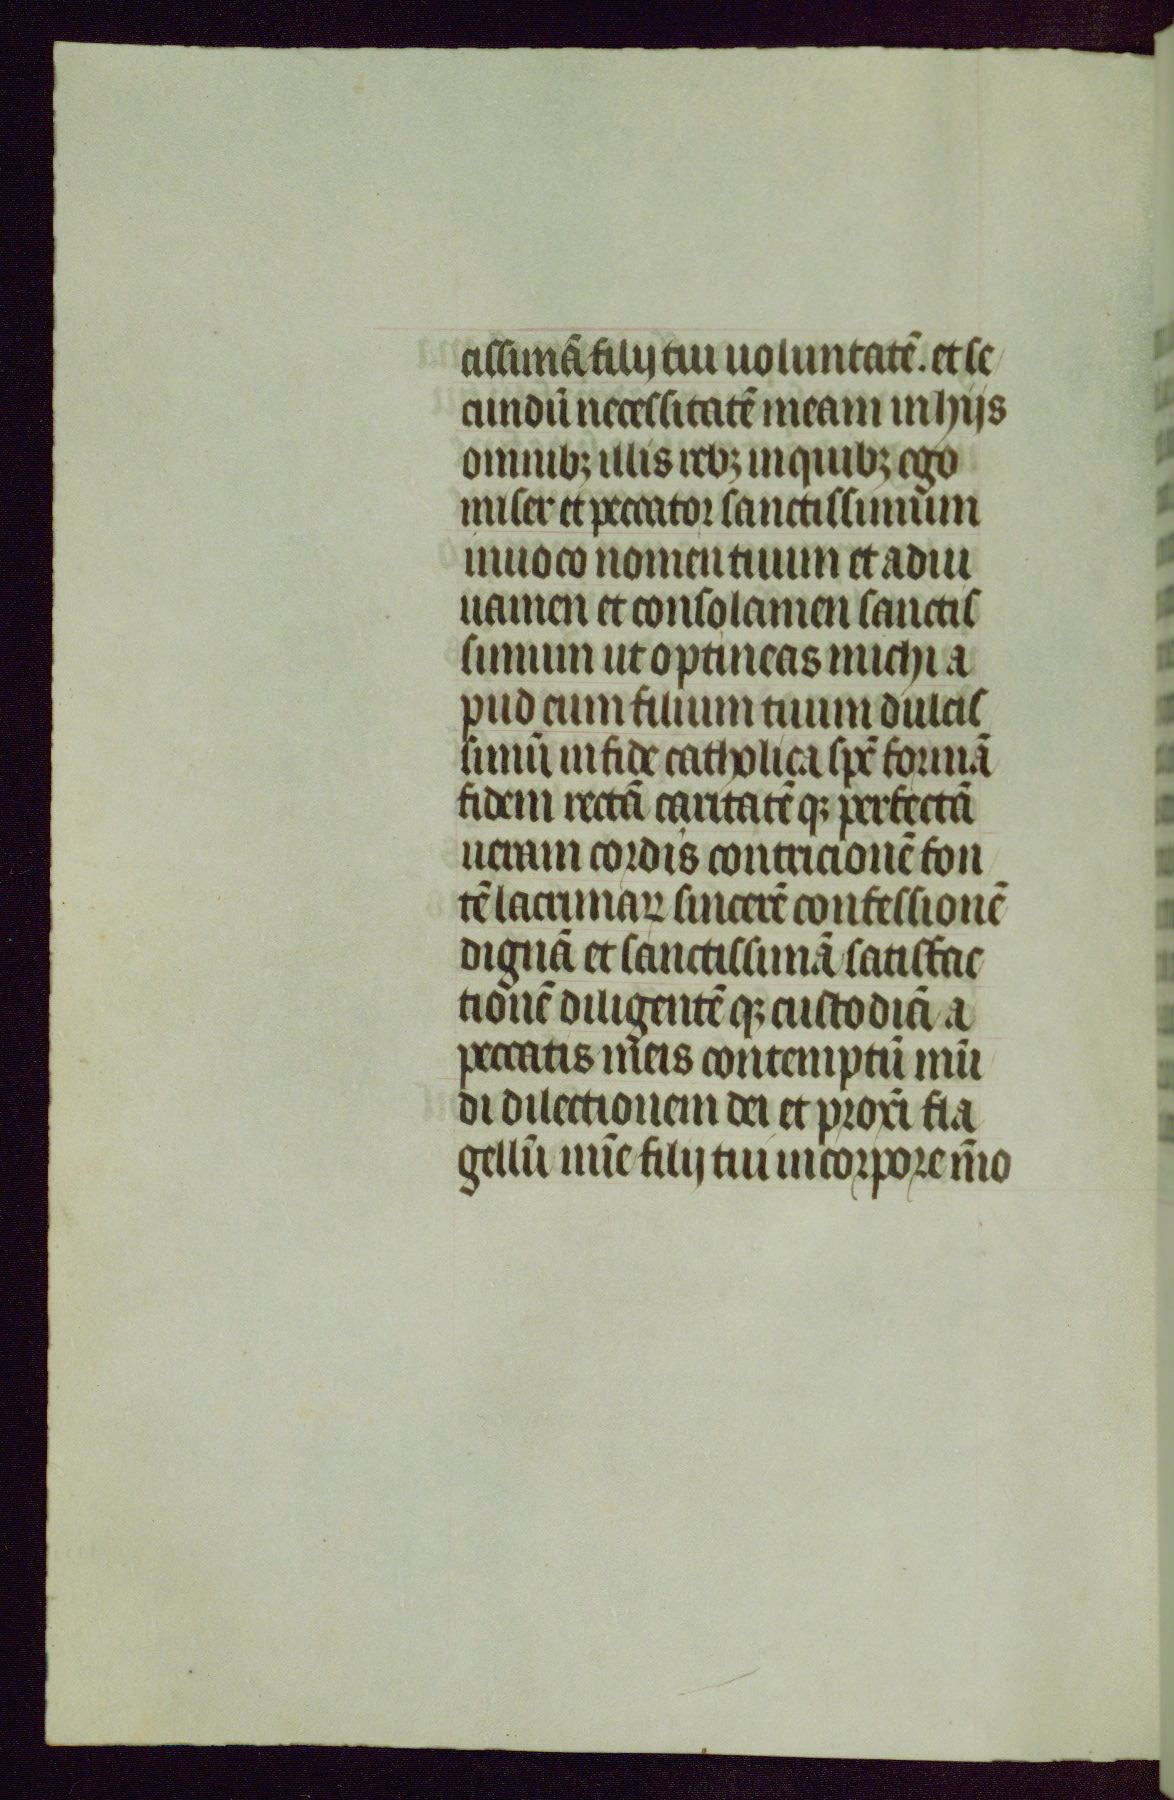 cissimā filij tui uoluntatē. et se
cundū necessitatē meam in hijs
omnibꝫ illis rebꝫ in quibꝫ ego
miser et peccator sanctissimum
inuoco nomen tuum et adiu
uamen et consolamen sanctis
simum ut optineas michi a
pud eum filium tuum dulcis
simū in fide catholica spē formā
fidem rectā caritatē qꝫ perfectā
ueram cordis contricionē fon
tē lacrimaꝝ sincerē confessionē
dignā et sanctissimā satisfac
tionē diligentē qꝫ custodiā a
peccatis meis contemptū mū
di dilectionem dei et proxī fla
gellū filij tui in corpore m̄o